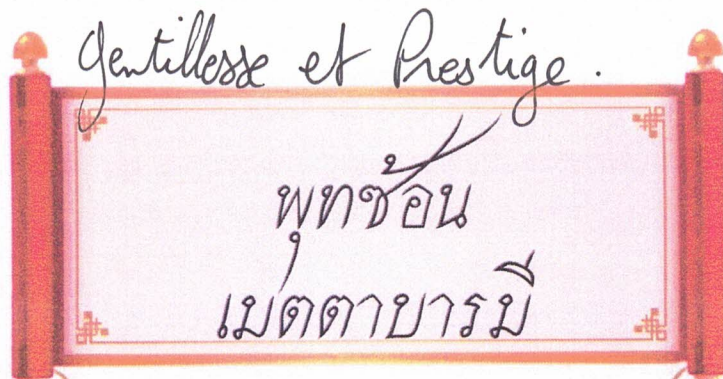 Gentillesse et Prestige.
พุทซ้อน
เมตตาบารมี